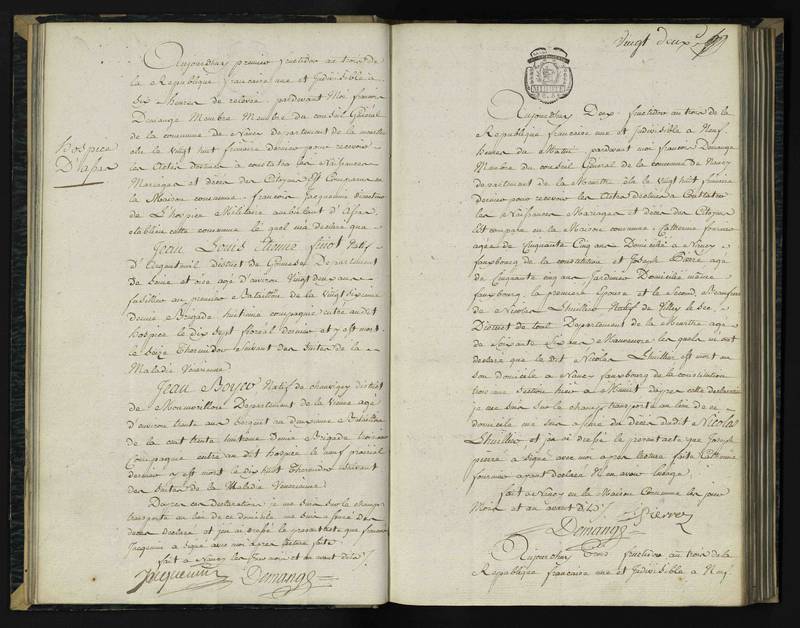 Aujourdhuy premier fructidor an trois de
la Republique francaise une et Indivisible a
Six heures de relevée pardevant Moi françois
Demange Membre du conseil Général
de la commune de Nancy département de la meurthe
élu le vingt huit frimaire dernier pour recevoir
les Actes destinés a constater les Naissances
Mariages et décès des Citoyens Est Comparu en
la Maison commune françois Jacquemin Directeur
de L'hospice Militaire ambulant d'
établie en cette commune lequel m'a déclaré que
Hospice
Jean Louis Etienne Natif
d'Argenteuil District de Gonesse Département
de Seine et oise agé d'environ Vingt deux ans
fusillier au premier Bataillon de la vingt sixieme
demie Brigade huitieme compagnie entré audit
hospice le dix Sept floréal dernier et y est mort
le Seize Thermidor Suivant des Suites de la
Maladie Vénérienne
Jean Natif de chauvigny district
de Département de la Vienne agé
d'environ trente ans Sergent au deuxieme Bataillon
de la cent trente Demie Brigade troisieme
Compagnie entré au dit hospice le neuf prairial
dernier y est mort le dix huit Thermidor suivant
des Suites de la Maladie Vénérienne
Dapres ces Declarations je me Suis Sur le champ
transporté au lieu de ce domicile me suis assuré des
décès déclaré et j'en ai dressé le présent acte que françois
Jacquemin a Signé avec moi apres lecture faite
fait a Nancy les Jour mois et an avant dits
Jacquemin Demange
Vingt deux
Aujourdhuy Deux fructidor an trois de la
Republique francaise une et Indivisible a Neuf
heures du Matin pardevant moi françois Demange
Membre du conseil Général de la commune de Nancy
departement de la Meurthe élu le Vingt huit frimaire
dernier pour recevoir les Actes destinés a Constater
les Naissances Mariages et décès des Citoyens
est comparu en la Maison commune Catherine fournier
agée de Cinquante Cinq ans Domiciliée a Nancy
fauxbourg de la constitution et Joseph Pierre agé
de Cinquante cinq ans Jardinier Domicilié même
fauxbourg la premiere Epouse et le Second Beaufrere
de Nicolas Lhuillier Natif de Villey le Sec
District de toul Département de la Meurthe agé
de Soixante ans Manoeuvre lesquels m'ont
déclaré que le dit Nicolas Lhuillier est mort en
son domicile a Nancy fauxbourg de la constitution
Section hier a Minuit dapres cette declaration
je me suis sur le champ transporté au lieu de ce
domicile me suis assuré du décès dudit Nicolas
Lhuillier et j'en ai dressé le présent acte que Joseph
pierre a Signé avec moi apres lecture faite Catherine
fournier ayant déclaré N'en avoir l'usage
fait a Nancy en la Maison Commune les jour
Mois et an avant dits
Pierre
Demange
Aujourdhuy Trois fructidor an trois de la
Republique francaise une et Indivisible a Neuf